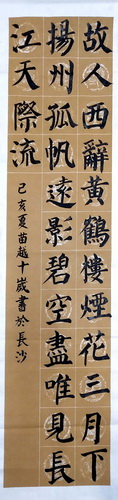 故人西辭黃鶴樓煙花三月下
揚州孤帆遠影碧空盡唯見長
江天際流
己亥夏苗越十歲書於長沙